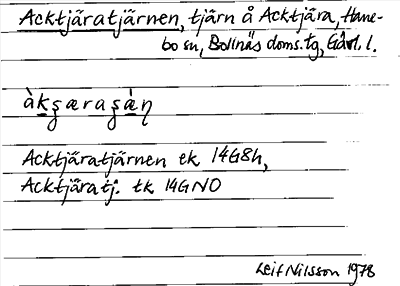 Acktjäratjärnen, tjärn å Acktjära, Hane-
bo sn, Bollnäs doms. tg, Gävl. l.
àkʂæraʂàn̥
Acktjäratjärnen ek 14G8h,
Acktjäratj. tk 14GNO
Leif Nilsson 1978